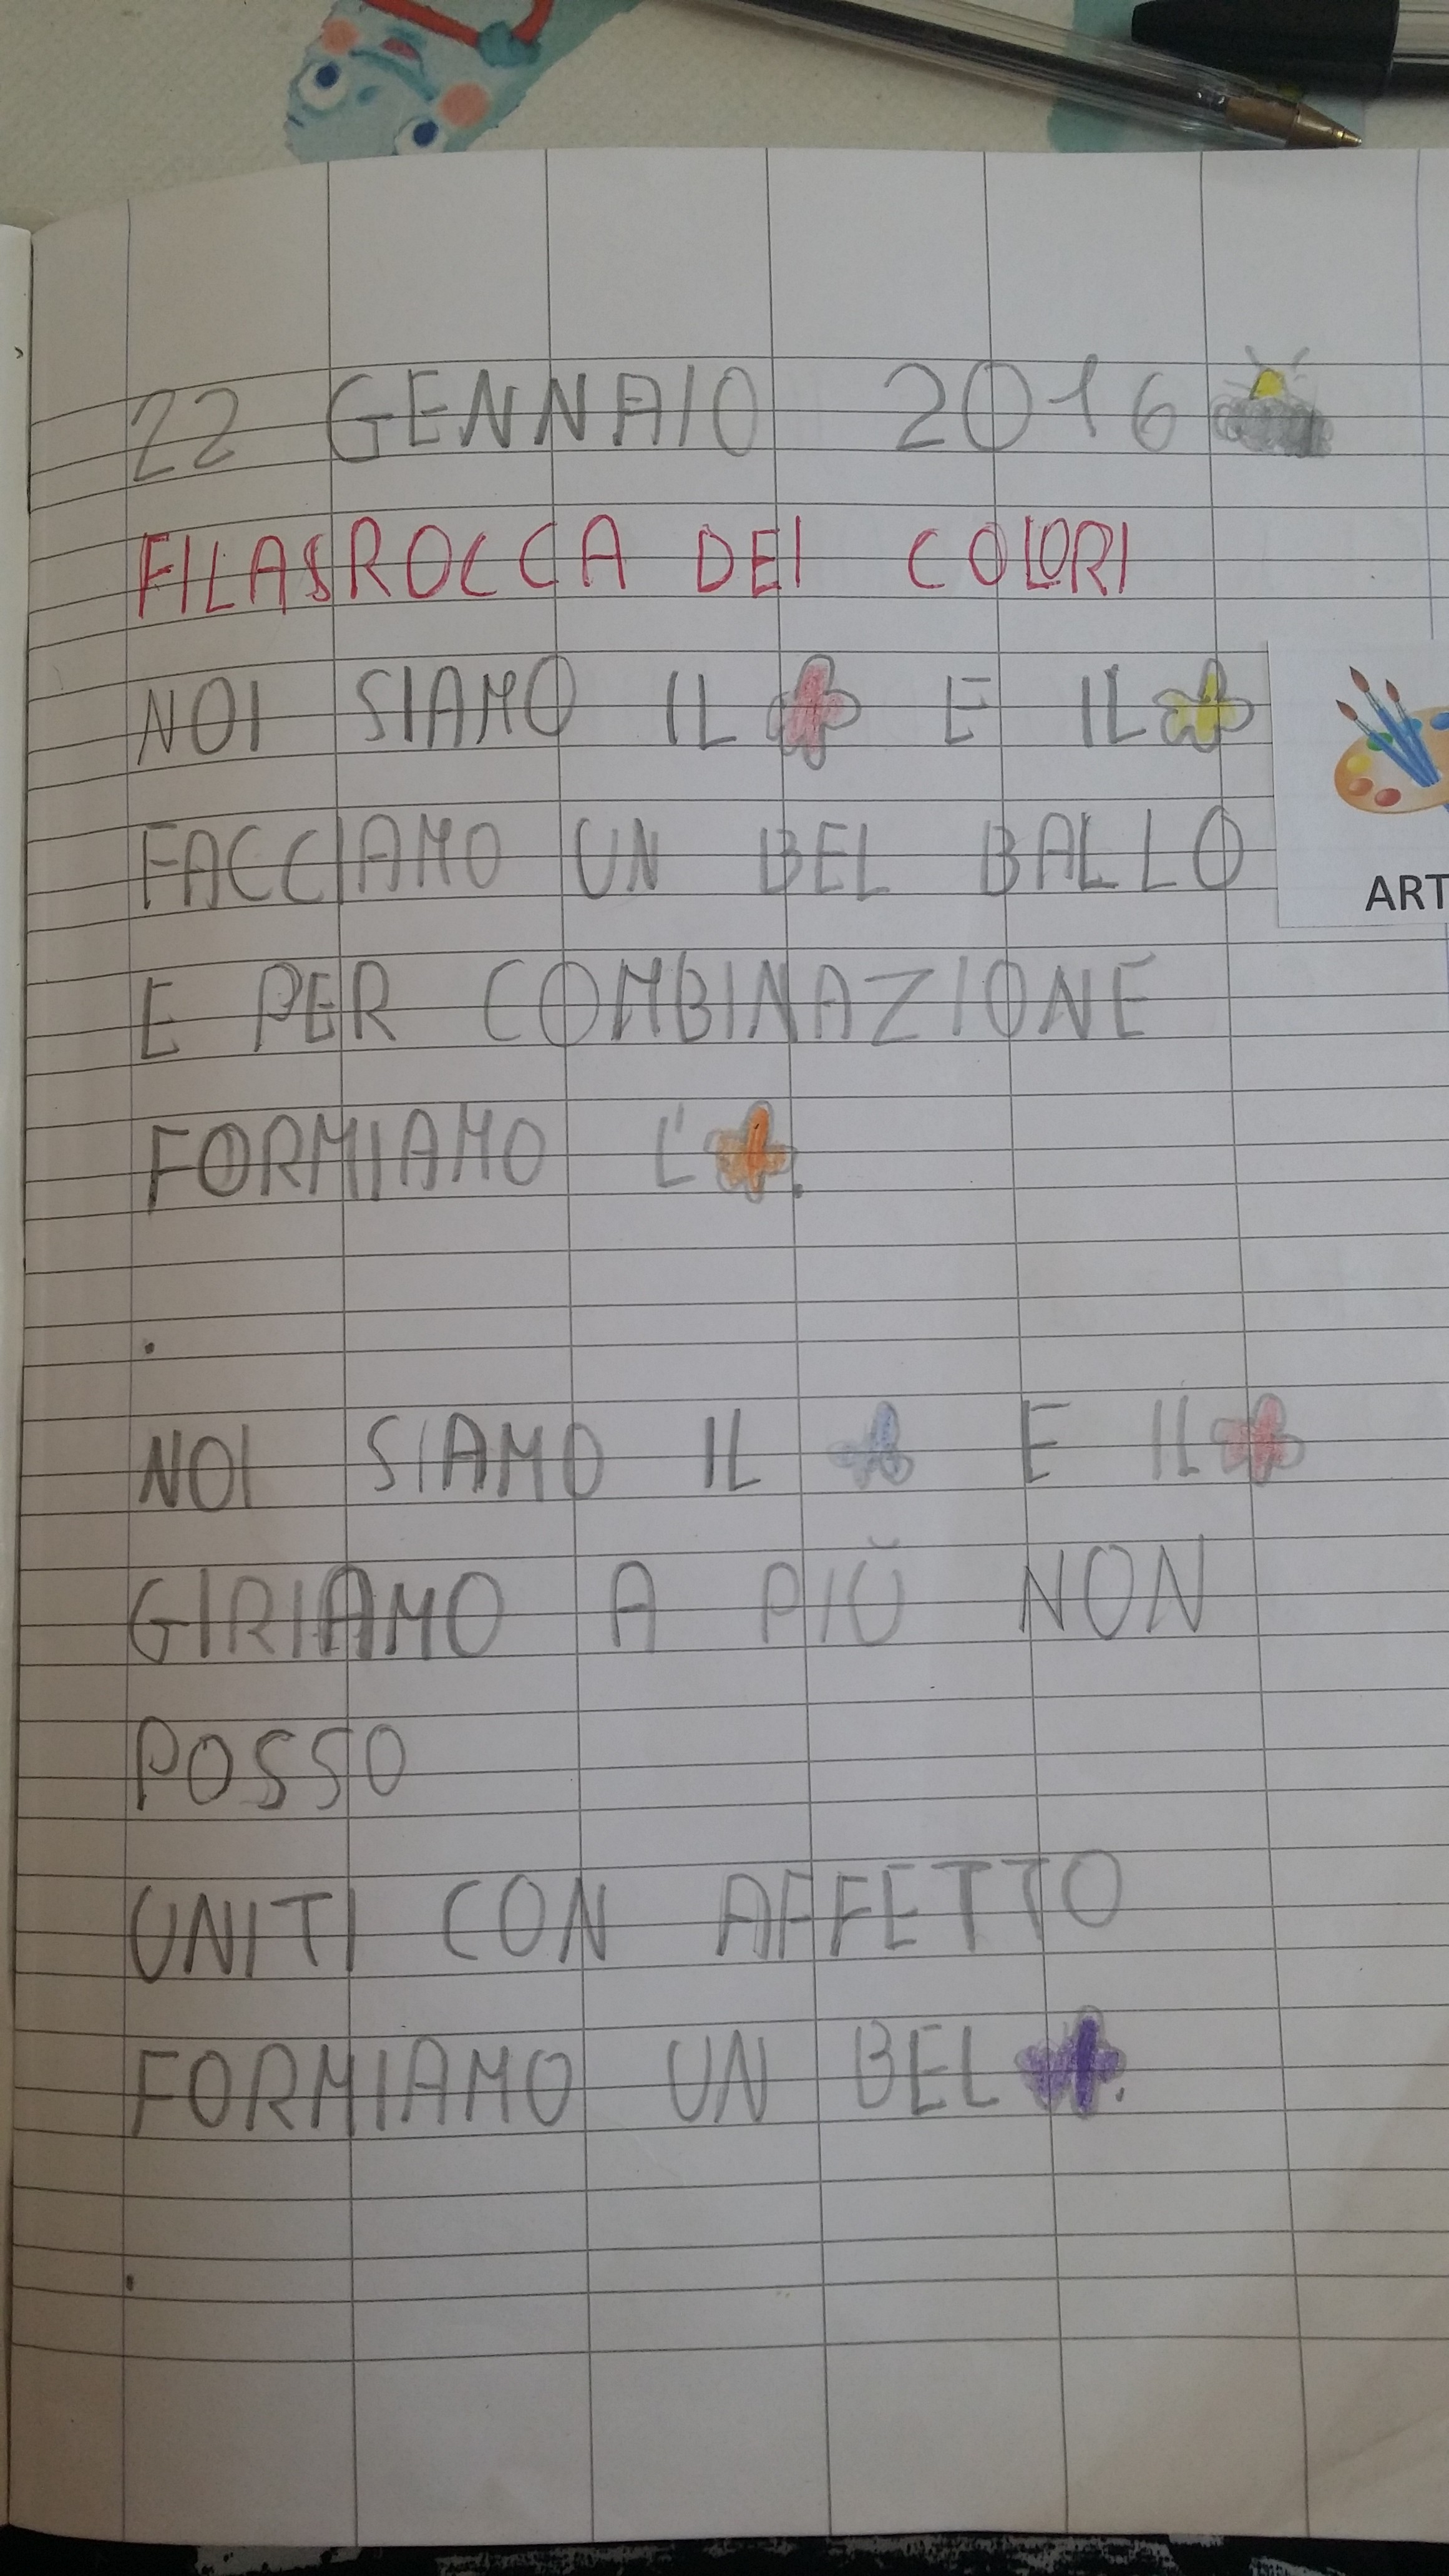 22 GENNAIO 2016
FILASROCCA DEI COLORI
NOI SIAMO IL E IL
FACCIAMO UN BEL BALLO
ART
E PER COMBINAZIONE
FORMIAMO L'.
.
NOI SIAMO IL E IL
GIRIAMO A PIÙ NON
POSSO
UNITI CON AFFETTO
FORMIAMO UN BEL.
.